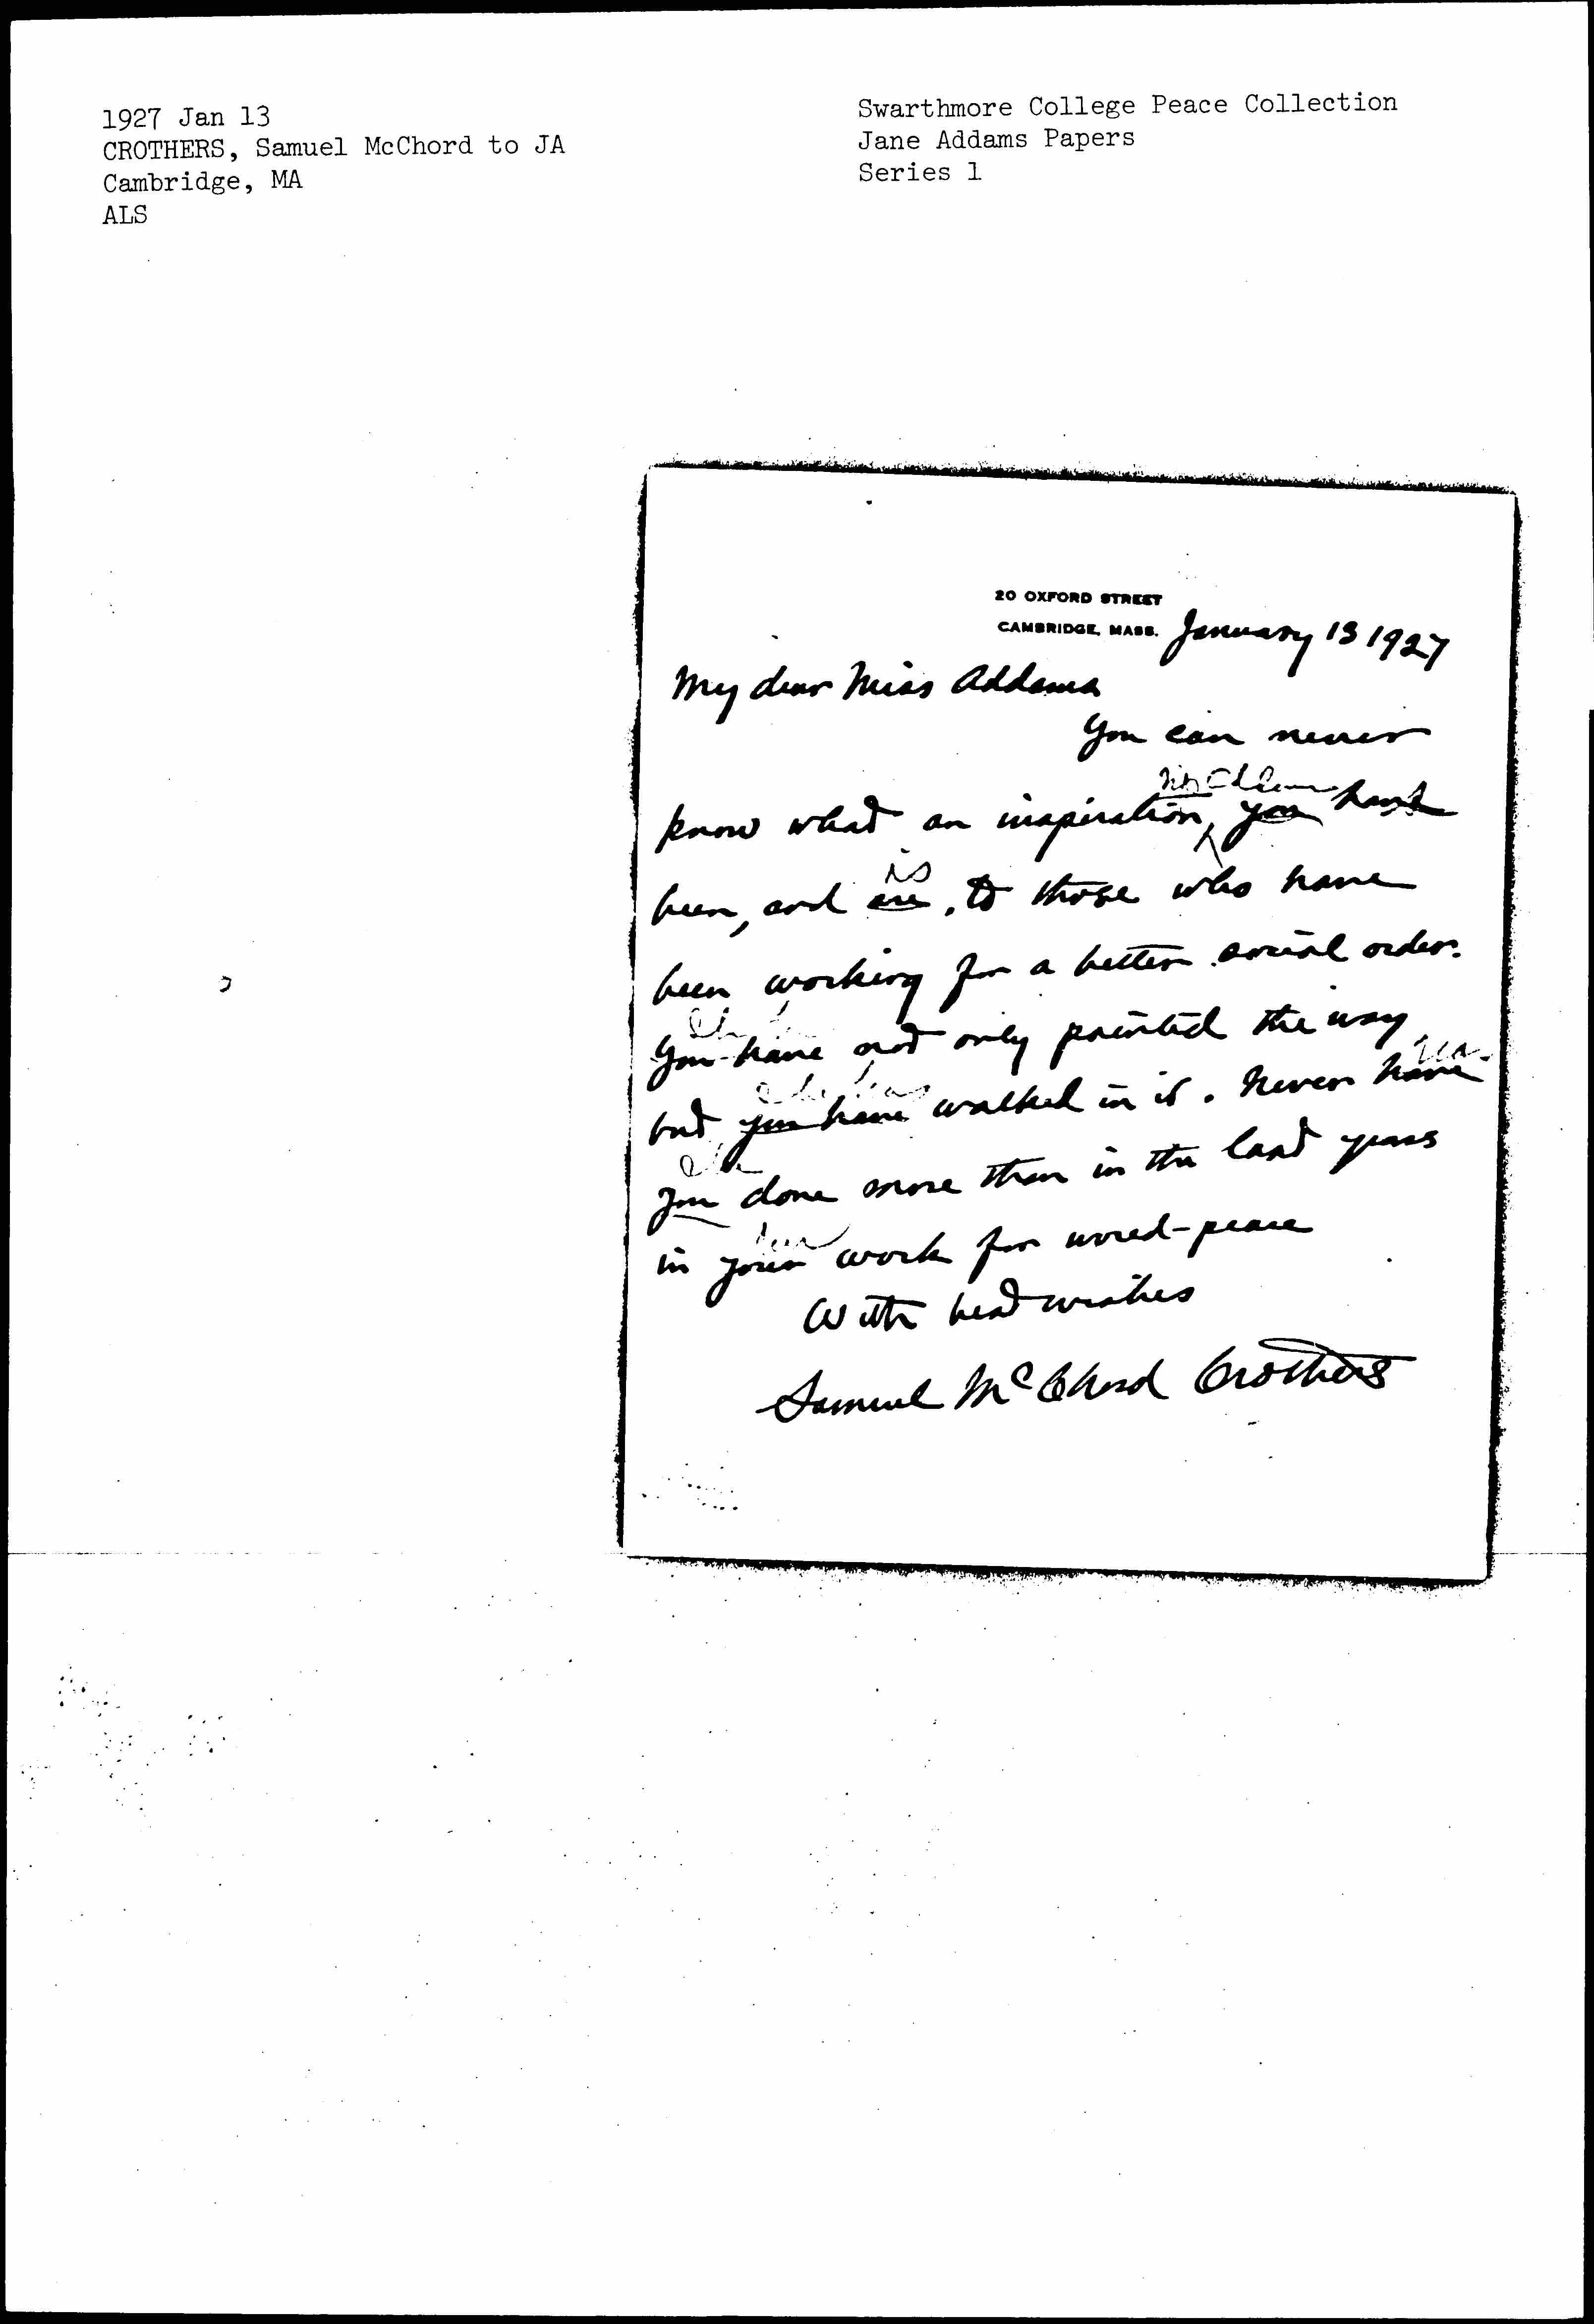 1927 Jan 13
CROTHERS, Samuel McChord to JA
Cambridge, MA
ALS
Swarthmore College Peace Collection
Jane Addams Papers
Series 1
20 OXFORD STREET
CAMBRIDGE, MASS. January 13 1927
My dear Miss Addams
You can never
Miss Addams
know what an inspiration, you have
is
been, and are, to those who have
been working for a better social order.
She
You have not only pointed the way
she has has
but you have walked in it. Never have
she
you done more than in the last years
her
in your work for world-peace
With best wishes
Samuel McChord Crothers